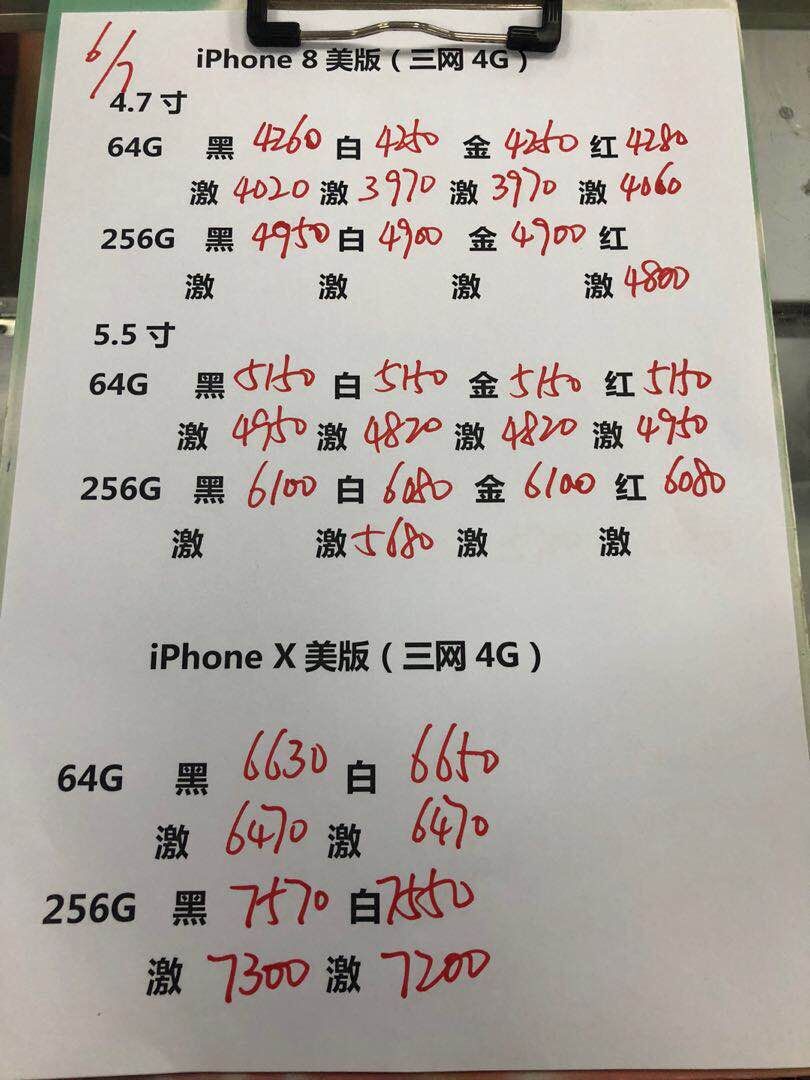 6/7
iPhone 8 美版（三网 4G）
4.7 寸
64G 黑 4260 白 4250 金 4250 红 4280
激 4020 激 3970 激 3970 激 4060
256G 黑 4950 白 4900 金 4900 红
激 激 激 激 4800
5.5 寸
64G 黑 5150 白 5150 金 5150 红 5150
激 4950 激 4820 激 4820 激 4950
256G 黑 6100 白 6080 金 6100 红 6080
激 激 5680 激 激
iPhone X 美版（三网 4G）
64G 黑 6630 白 6650
激 6470 激 6470
256G 黑 7570 白 7550
激 7300 激 7200